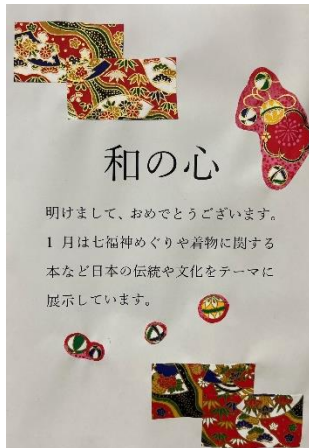 和の心
明けまして、おめでとうございます。
1 月は七福神めぐりや着物に関する
本など日本の伝統や文化をテーマに
展示しています。